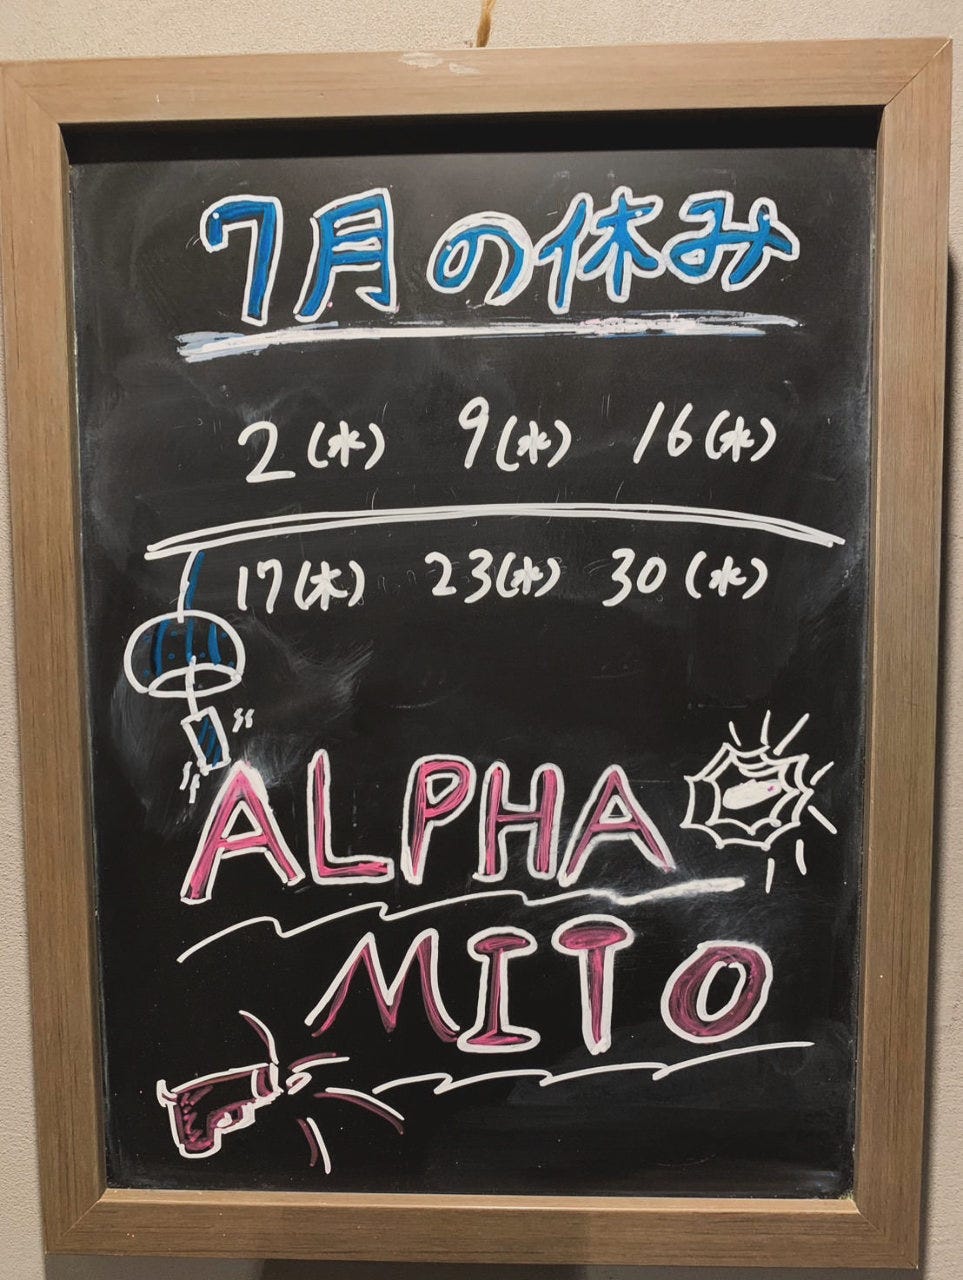 7月の休み
2(水) 9(水) 16(水)
17(木) 23(水) 30(水)
ALPHA
MITO